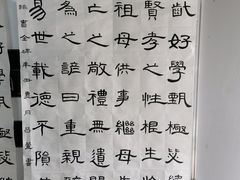 齔好學甄極毖
賢孝之性根生
祖母供事繼母
亡之敬禮無遺
為之諺曰重親
易世載德不隕